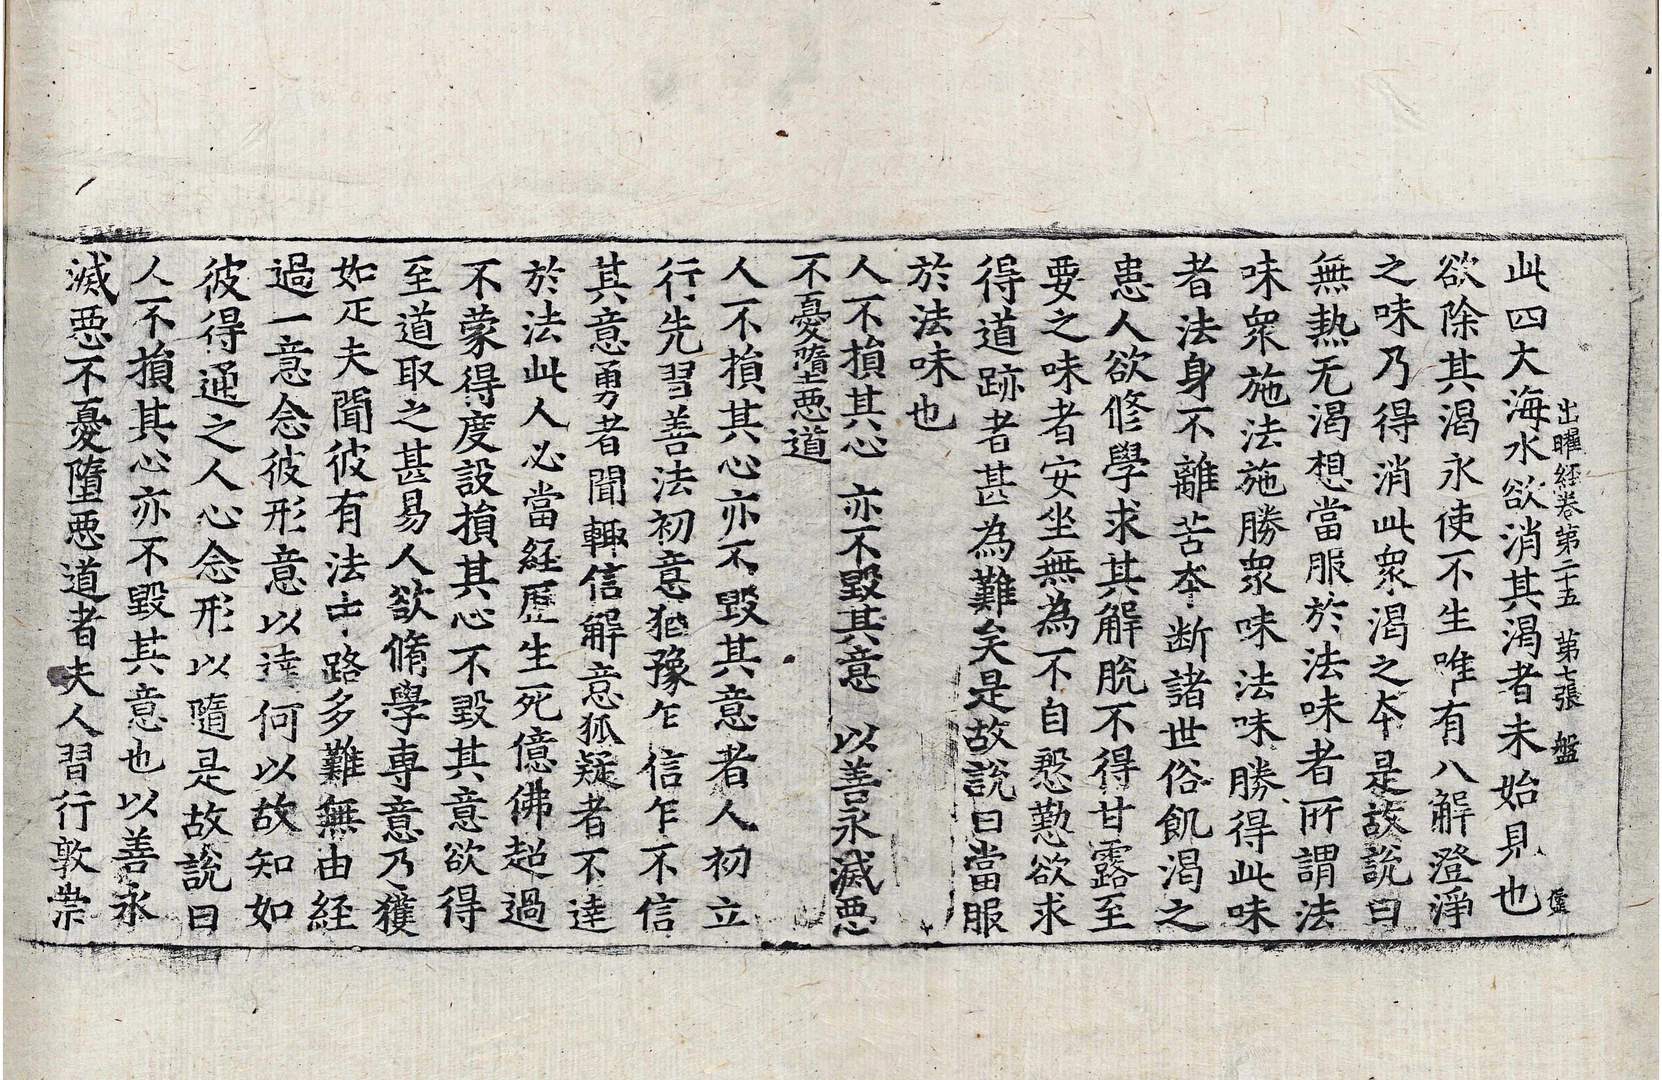 出曜経卷第二十五　第七張　盤
此四大海水欲消其渇者未始見也
欲除其渇永使不生唯有八解澄淨
之味乃得消此衆渇之夲是故說曰
無熱无渇想當服於法味者所謂法
味衆施法施勝衆味法味勝得此味
者法身不離苦夲断諸世俗飢渇之
患人欲修學求其解脫不得甘露至
要之味者安坐無為不自慇懃欲求
得道跡者甚為難矣是故說曰當服
於法味也
人不損其心　亦不毀其意　以善永滅惡
不憂墮惡道
人不損其心亦不毀其意者人初立
行先習善法初意猶豫乍信乍不信
其意勇者聞輙信解意狐疑者不達
於法此人必當経歷生死億佛超過
不蒙得度設損其心不毀其意欲得
至道取之甚易人欲脩學專意乃獲
如疋夫聞彼有法士路多難無由経
過一意念彼形意以達何以故知如
彼得通之人心念形以隨是故說曰
人不損其心亦不毀其意也以善永
滅惡不憂墮惡道者夫人習行敦崇